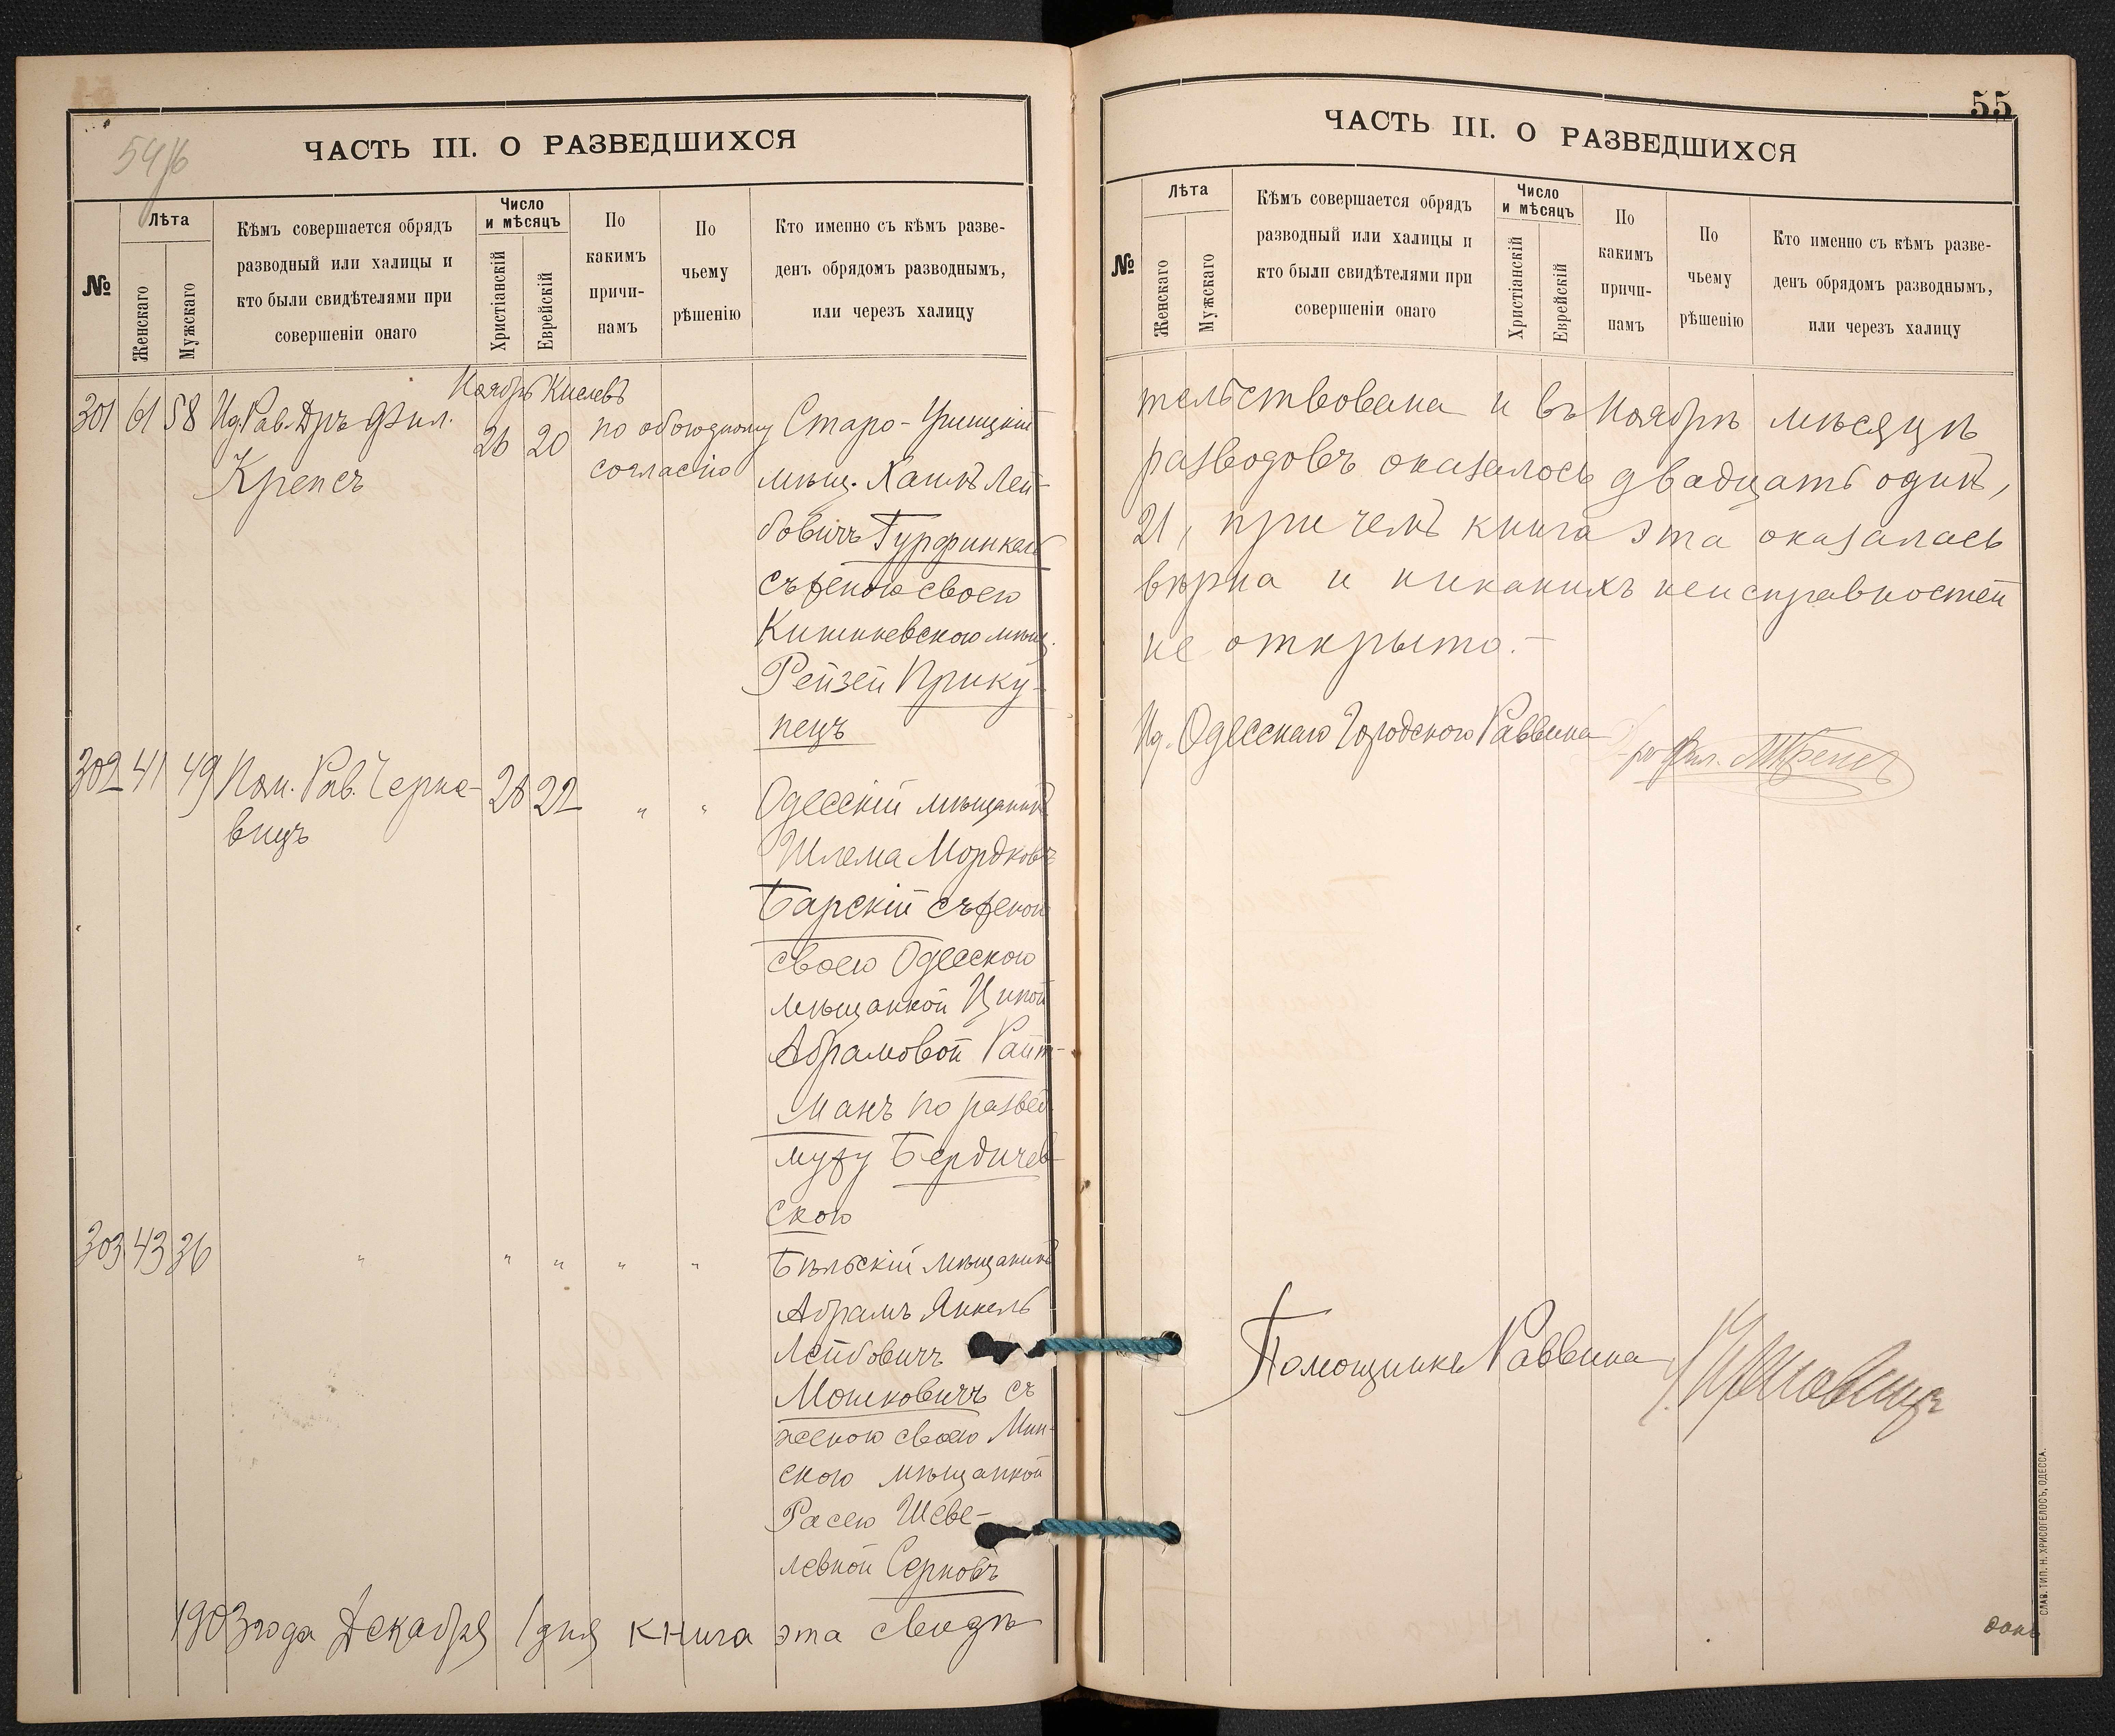 54/6
ЧАСТЬ III. О РАЗВЕДШИХСЯ
№
Лѣта
Женскаго
Мужскаго
Кѣмъ совершается обрядъ
разводный или халицы и
кто были свидѣтелями при
совершеніи онаго
Число
и мѣсяцъ
Христіанскій
Еврейскій
По
какимъ
причи-
намъ
По
чьему
рѣшенію
Кто именно съ кѣмъ разве-
денъ обрядомъ разводнымъ,
или черезъ халицу
Ноябрь Кислевъ
301 61 58 Ид. Рав. Дръ Фил.
Крепсъ
26 20
по обоюдному
согласію
Старо-Ушицкій
мѣщ. Хаимъ Лей-
бовичъ Гурфинкель
съ женою своею
Кишиневскою мѣщ.
Рейзей Прику-
пецъ
302 41 49 Пом. Рав. Черка-
вицъ
28 22 " "
Одесскій мѣщанинъ
Шлема Мордковъ
Барскій съ женой
своею Одесскою
мѣщанкой Ципой
Абрамовой Райт-
манъ по развед
мужу Бердичев-
скою
303 43 36 " " " " "
Бѣльскій мѣщанинъ
Абрамъ Янкель
Лейбовичъ
Мошковичъ съ
женою своею Мин-
скою мѣщанкой
Расею Шеве-
левной Серковъ
1903 года Декабря 1 дня книга эта свидѣ
55
ЧАСТЬ III. О РАЗВЕДШИХСЯ
№
Лѣта
Женскаго
Мужскаго
Кѣмъ совершается обрядъ
разводный или халицы и
кто были свидѣтелями при
совершеніи онаго
Число
и мѣсяцъ
Христіанскій
Еврейскій
По
какимъ
причи-
намъ
По
чьему
рѣшенію
Кто именно съ кѣмъ разве-
денъ обрядомъ разводнымъ,
или черезъ халицу
тельствована и въ Ноябрѣ мѣсяцѣ
разводовъ оказалось двадцать одинъ,
21, причемъ книга эта оказалась
вѣрна и никакихъ неисправностей
не открыто.-
Ид. Одесскаго Городского Раввина
др Фил. МКрепсъ
Помощникъ Раввина
СЛАВ. ТИП. Н. ХРИСОГЕЛОСЪ, ОДЕССА.